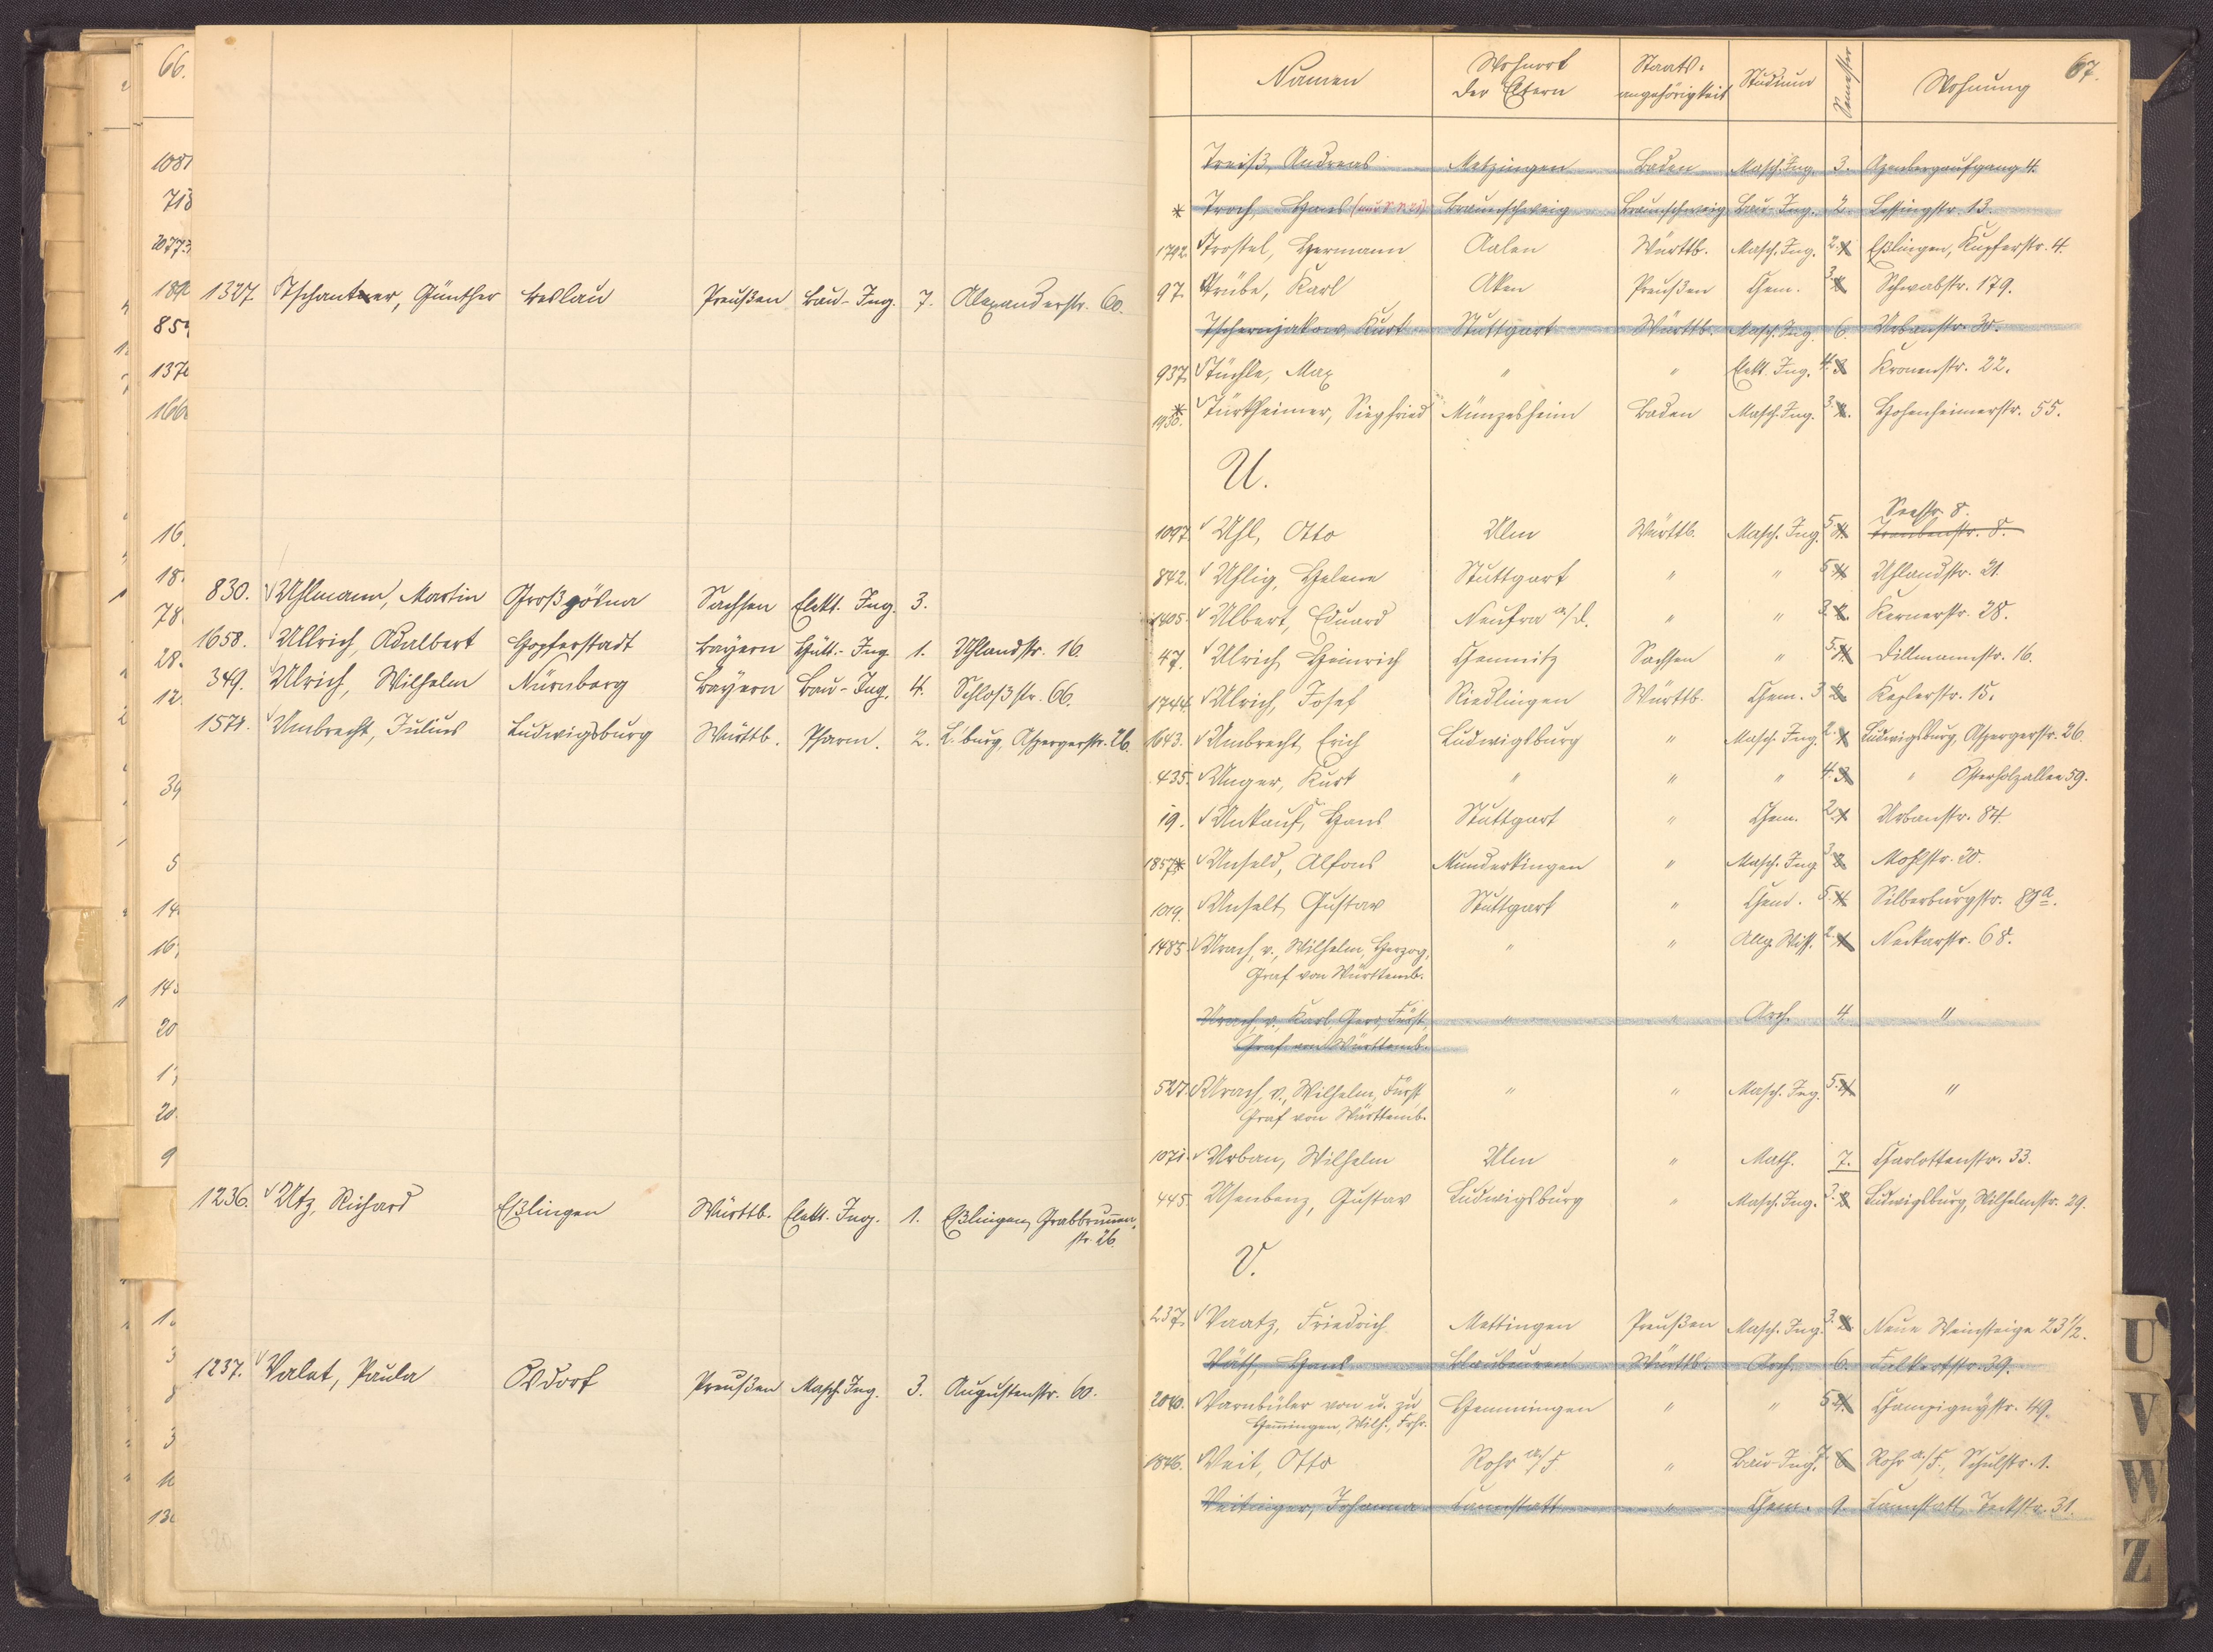 66.
1327. Tschantner, Günther Breslau Preußen Bau-Ing. 7. Alexanderstr. 60.
830. Uhlmann, Martin Sachsen Elekt. Ing. 3.
1658. Ullrich, Adalbert Hopferstadt Bayern Hütt.-Ing. 1. Uhlandstr. 16.
349. Ulrich, Wilhelm Nürnberg Bayern Bau-Ing. 4. Schloßstr. 66.
1571. Umbrecht, Julius Ludwigsburg Württb. Pharm. 2. L.'burg, Aspergerstr. 26.
1236. Utz, Richard Eßlingen Württb. Elekt. Ing. 1. Eßlingen, Grabbrunnen-
str. 26.
1237. Valet, Paula Preußen Masch. Ing. 3. Augustenstr. 60.
67.
Namen Wohnort der Eltern Staats-angehörigkeit Studium Semester Wohnung
Treiß, Andreas Metzingen Baden Masch. Ing. 3. Azenbergaufgang 4.
* Troch, Hans Braunschweig Braunschweig Bau-Ing. 2. Lessingstr. 13.
1792. Trostel, Hermann Aalen Württb. Masch. Ing. 2. Eßlingen, Kupferstr. 4.
97. Trübe, Karl Aken Preußen Chem. 3. Schwabstr. 179.
Tschernjakow, Kurt Stuttgart Württb. Masch. Ing. 6. Urbanstr. 30.
937. Tüchle, Max " " Elekt. Ing. 4. 3. Kronenstr. 22.
* 1930. Türkheimer, Siegfried Münzesheim Baden Masch. Ing. 3. 2. Hohenheimerstr. 55.
U.
Seestr. 8.
1097. Uhl, Otto Ulm Württb. Masch. Ing. 5. 4. Traubenstr. 8.
842. Uhlig, Helene Stuttgart " " 5. 4. Uhlandstr. 21.
1405. Ulbert, Eduard Neufra a/D. " " 3. 2. Kernerstr. 28.
47. Ulrich, Heinrich Chemnitz Sachsen " 5. 4. Dillmannstr. 16.
1744. Ulrich, Josef Riedlingen Württb. Chem. 3. 2. Keplerstr. 15.
1643. Umbrecht, Erich Ludwigsburg " Masch. Ing. 2. 1. Ludwigsburg, Aspergerstr. 26.
435. Unger, Kurt " " " 4. 3. " Osterholzallee 59.
19. Unkauf, Hans Stuttgart " Chem. 2. 1. Urbanstr. 84.
1857* Unseld, Alfons Munderkingen " Masch. Ing. 3. 2. Mohlstr. 20.
1019. Unselt, Gustav Stuttgart " Chem. 5. 4. Silberburgstr. 89a.
1485. Urach, v., Wilhelm, Herzog, " " Allg. Wiss. 2. 1. Neckarstr. 68.
Graf von Württemb.
Urach, v., Karl Gero, Fürst, " " Arch. 4 "
Graf von Württemb.
527. Urach, v., Wilhelm, Fürst " " Masch. Ing. 5. 4. "
Graf von Württemb.
1071. Urban, Wilhelm Ulm " Math. 7. Charlottenstr. 33.
445. Usenbenz, Gustav Ludwigsburg " Masch. Ing. 3. 2. Ludwigsburg, Wilhelmstr. 29.
V.
237. Vaatz, Friedrich Mettingen Preußen Masch. Ing. 3. 2. Neue Weinsteige 23 1/2.
Väth, Hans Blaubeuren Württb. Arch. 6. Falkertstr. 39.
2040. Varnbüler von u. zu Hemmingen " " 5. 4. Champignystr. 49.
Hemmingen, Wilh., Frhr.
1846. Veit, Otto Rohr a/F. " Bau-Ing. 7. 6. Rohr a/F., Schulstr. 1.
Veitinger, Johanna Cannstatt " Chem. 9. Cannstatt, Teckstr. 31.
U
V
W
Z